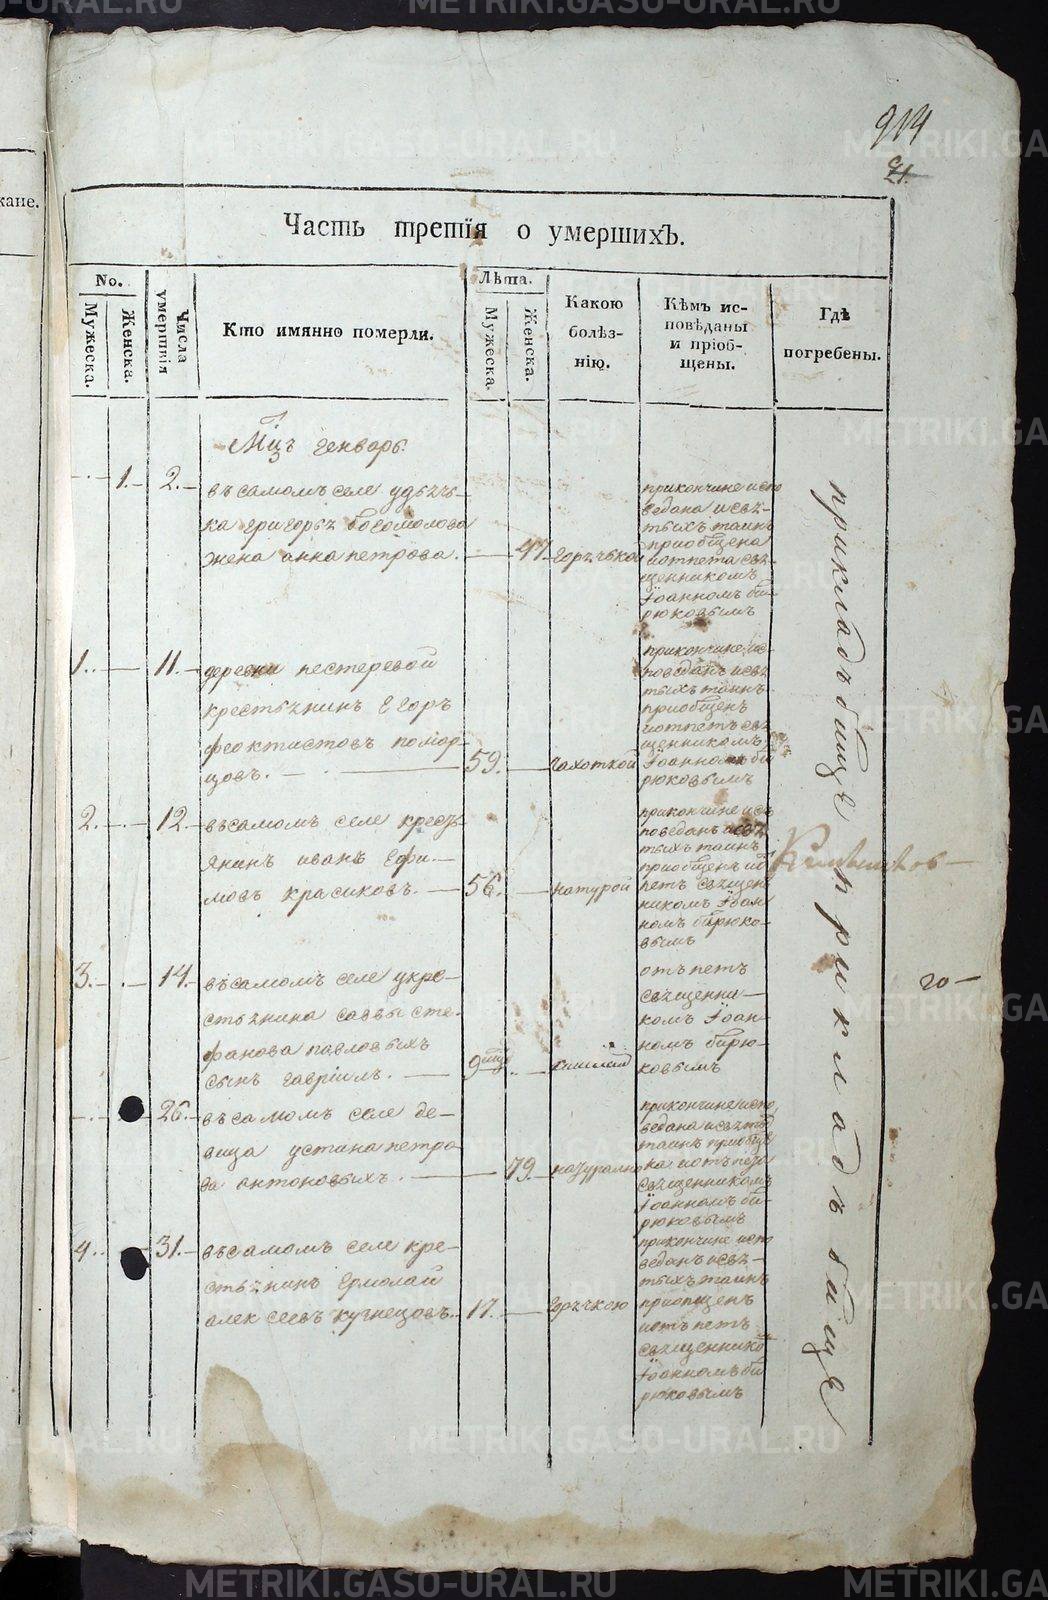 914
21.
кане.
Часть третїя о умершихъ.
No.
Мужеска.
Женска.
Числа умершїя
Кто имянно померли.
Лѣта.
Мужеска.
Женска.
Какою болѣз-
нїю.
Кѣмъ ис-
повѣданы
и прїоб-
щены.
Гдѣ
погребены.
Мцъ генварь.
1. 2. въ самомъ селе
ка григорья богомолова
жена анна петрова. 47. горячкой
прикончине испо
ведана исвя-
тыхъ таинъ
приобщена
иотпета свя-
щенникомъ
Iоанномъ би-
рюковымъ
1. 11. деревни пестеревой
крестьянинъ Егоръ
феоктистовъ помор-
цовъ. 59. чахоткой
прикончине ис-
поведанъ исвя
тыхъ таинъ
приобщенъ
иотпетъ свя
щенникомъ
Iоанномъ би
рюковымъ
2. 12. въсамомъ селе кресть-
янинъ иванъ Ефи-
мовъ красиковъ. 56. натурой
прикончине исъ
поведанъ исвя
тыхъ таинъ
приобщенъ
петъ священ
никомъ Iоан
номъ бирюко-
вымъ
3. 14. въсамомъ селе укре-
стьянина саввы сте-
фанова павловыхъ
сынъ гавріилъ. 9
отъпетъ
священни-
комъ Iоан-
номъ бирю-
ковымъ
20-
26. въсамомъ селе де-
вица устина петро-
ва антоновыхъ. 79. натурално
прикончине испо
ведана
таинъ приобще
на иотъпета
священникомъ
Iоанномъ би-
рюковымъ
4. 31. въсамомъ селе кре-
стьянинъ Ермолай
алексеевъ кузнецовъ. 17. горячкою
прикончине испо
веданъ исвя-
тыхъ таинъ
приопщенъ
иотъпетъ
священнико
Iоанномъ би
рюковымъ
прикладъбище прикладъбище
METRIKI.GASO-URAL.RU